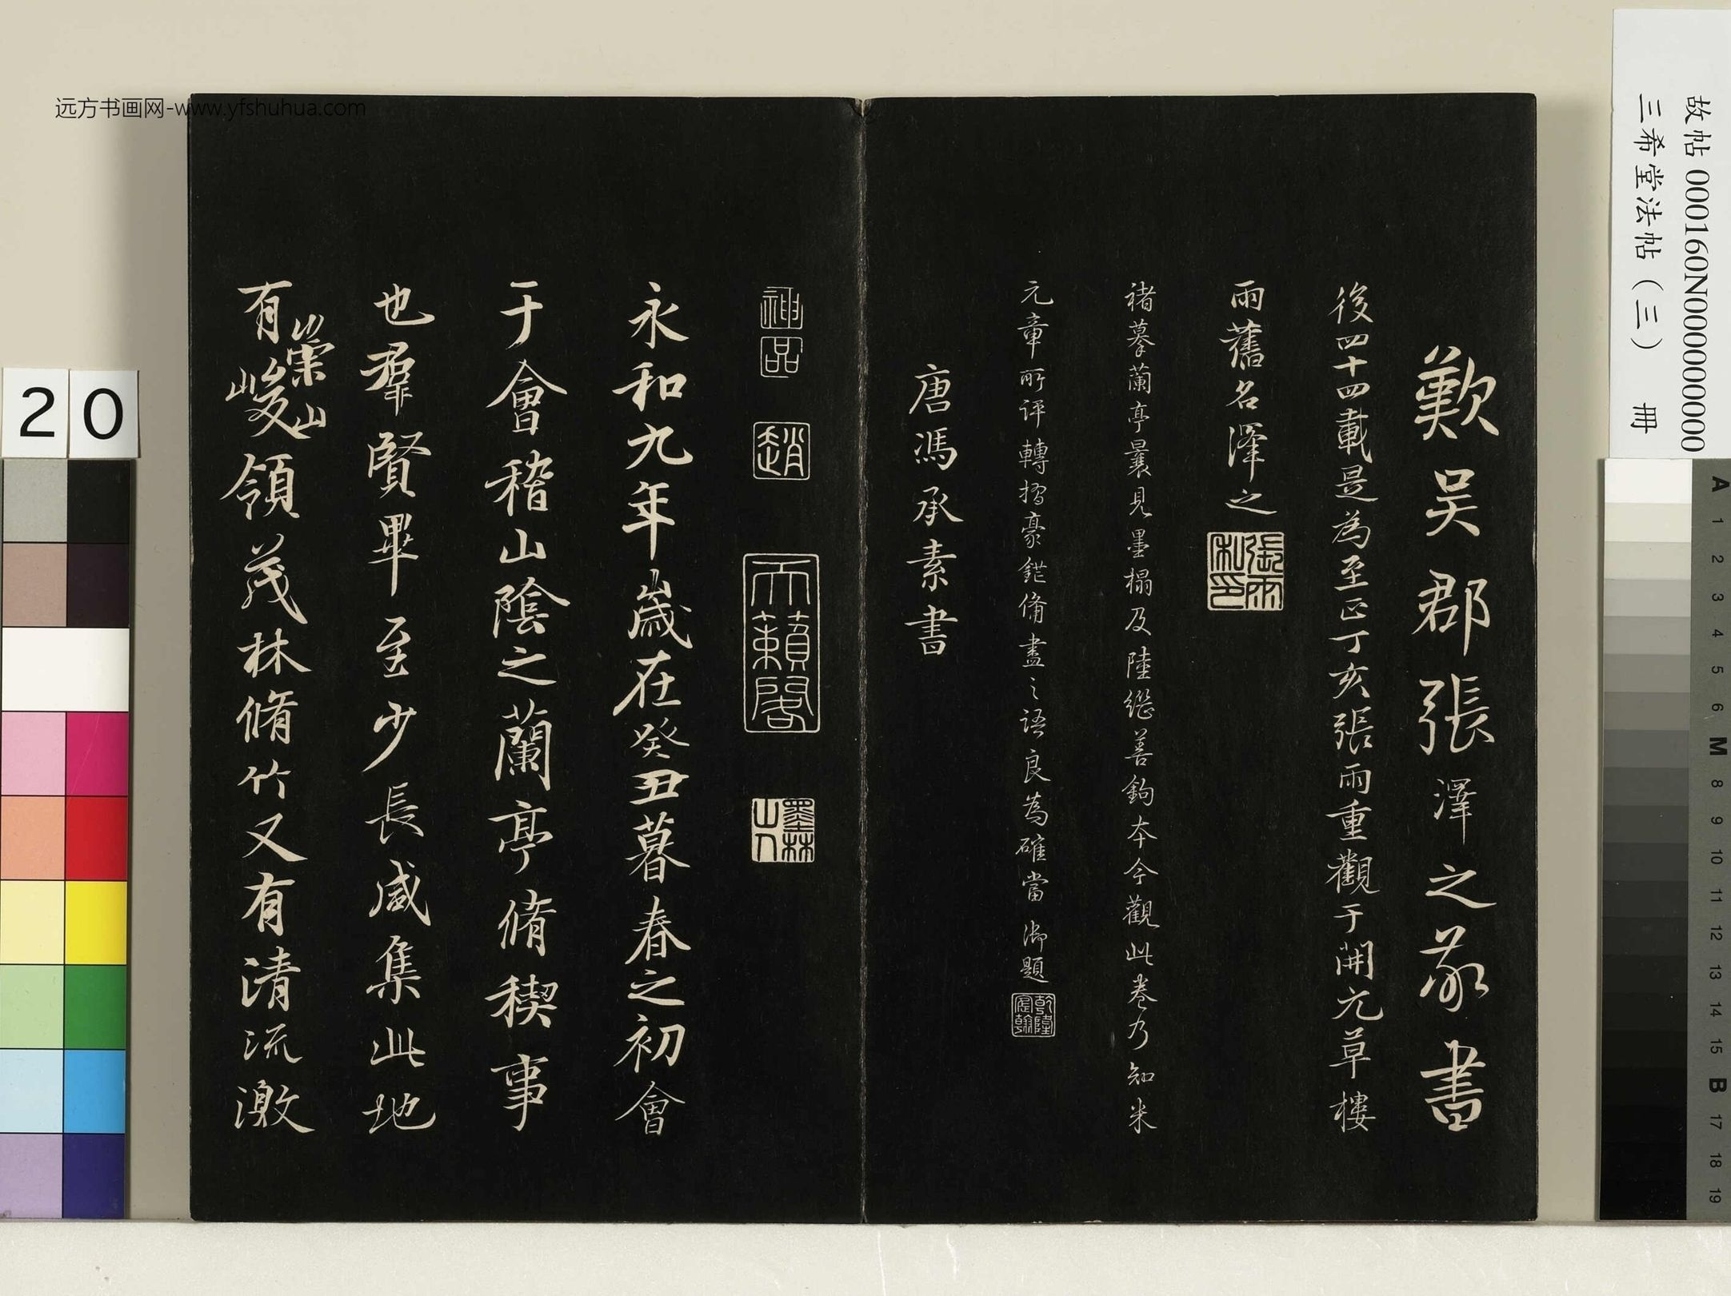 远方书画网-www.yfshuhua.com
故帖 000160N000000000
三希堂法帖（三） 冊
20
歎吴郡張澤之敬書
後四十四載是為至正丁亥張雨重觀于開元草樓
雨舊名澤之
張雨私印
褚摹蘭亭曩見墨榻及陸繼善鉤本今觀此卷乃知米
元章所評轉摺豪鋩備盡之語良為確當 御題
乾隆宸翰
唐馮承素書
神品
趙
天籟閣
墨林山人
永和九年歲在癸丑暮春之初會
于會稽山陰之蘭亭脩稧事
也羣賢畢至少長咸集此地
有崇山峻領茂林脩竹又有清流激
A 1 2 3 4 5 6 M 8 9 10 11 12 13 14 15 B 17 18 19